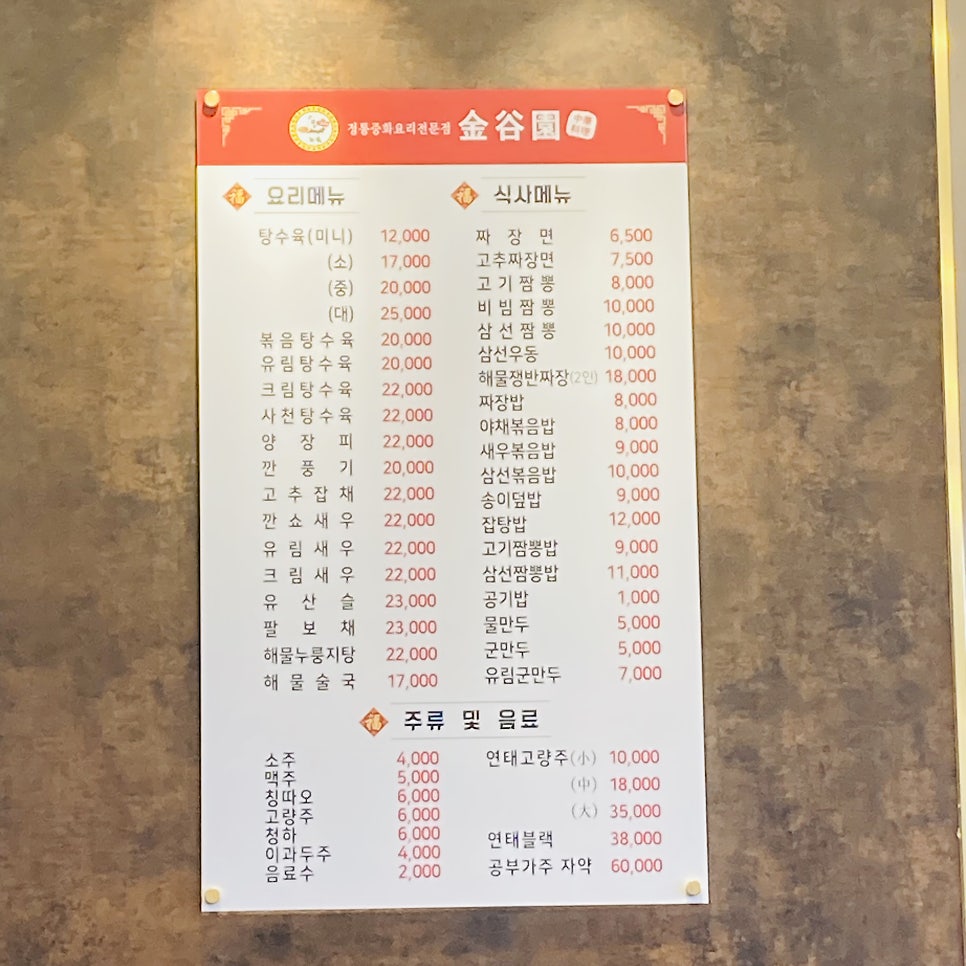 정통중화요리전문점 金谷園 中華料理
福 요리메뉴
탕수육(미니) 12,000
(소) 17,000
(중) 20,000
(대) 25,000
볶음탕수육 20,000
유림탕수육 20,000
크림탕수육 22,000
사천탕수육 22,000
양 장 피 22,000
깐 풍 기 20,000
고추잡채 22,000
깐쇼새우 22,000
유림새우 22,000
크림새우 22,000
유 산 슬 23,000
팔 보 채 23,000
해물누룽지탕 22,000
해물술국 17,000
福 식사메뉴
짜 장 면 6,500
고추짜장면 7,500
고기짬뽕 8,000
비빔짬뽕 10,000
삼선짬뽕 10,000
삼선우동 10,000
해물쟁반짜장(2인) 18,000
짜장밥 8,000
야채볶음밥 8,000
새우볶음밥 9,000
삼선볶음밥 10,000
송이덮밥 9,000
잡탕밥 12,000
고기짬뽕밥 9,000
삼선짬뽕밥 11,000
공기밥 1,000
물만두 5,000
군만두 5,000
유림군만두 7,000
福 주류 및 음료
소주 4,000
맥주 5,000
칭따오 6,000
고량주 6,000
청하 6,000
이과두주 4,000
음료수 2,000
연태고량주(小) 10,000
(中) 18,000
(大) 35,000
연태블랙 38,000
공부가주 자약 60,000